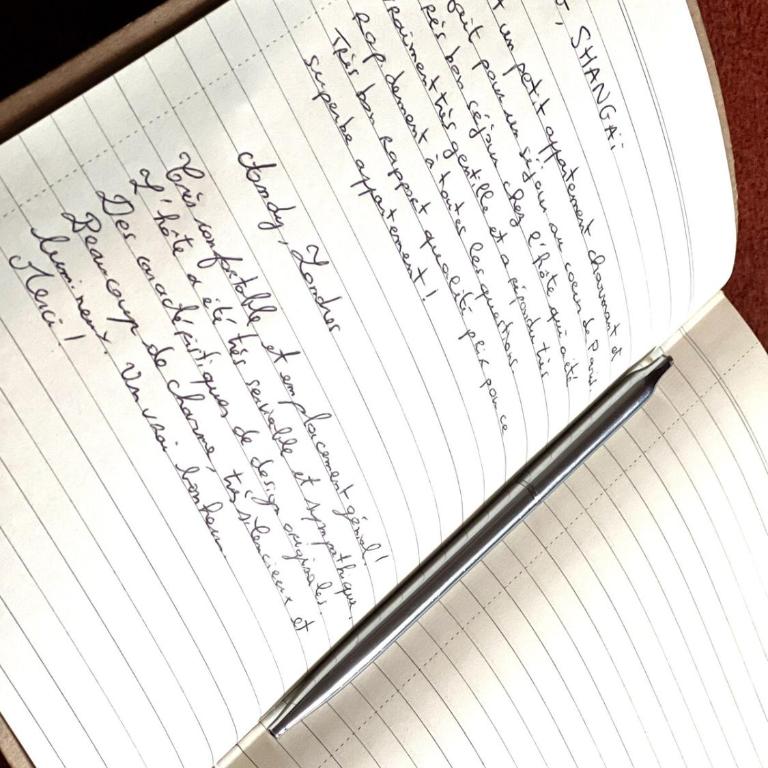 , SHANGAï
un petit appartement charmant et
fait pour un séjour au coeur de Paris.
rès bon séjour chez l'hôte qui a été
vraiment très gentille et a répondu très
rapidement à toutes les questions
Très bon rapport qualité prix pour ce
superbe appartement!
Andy, Londres
Très confortable et emplacement génial!
L'hôte a été très serviable et sympathique.
Des caractéristiques de design originales.
Beaucoup de charme, très silencieux et
lumineux. Un vrai bonheur.
Merci!